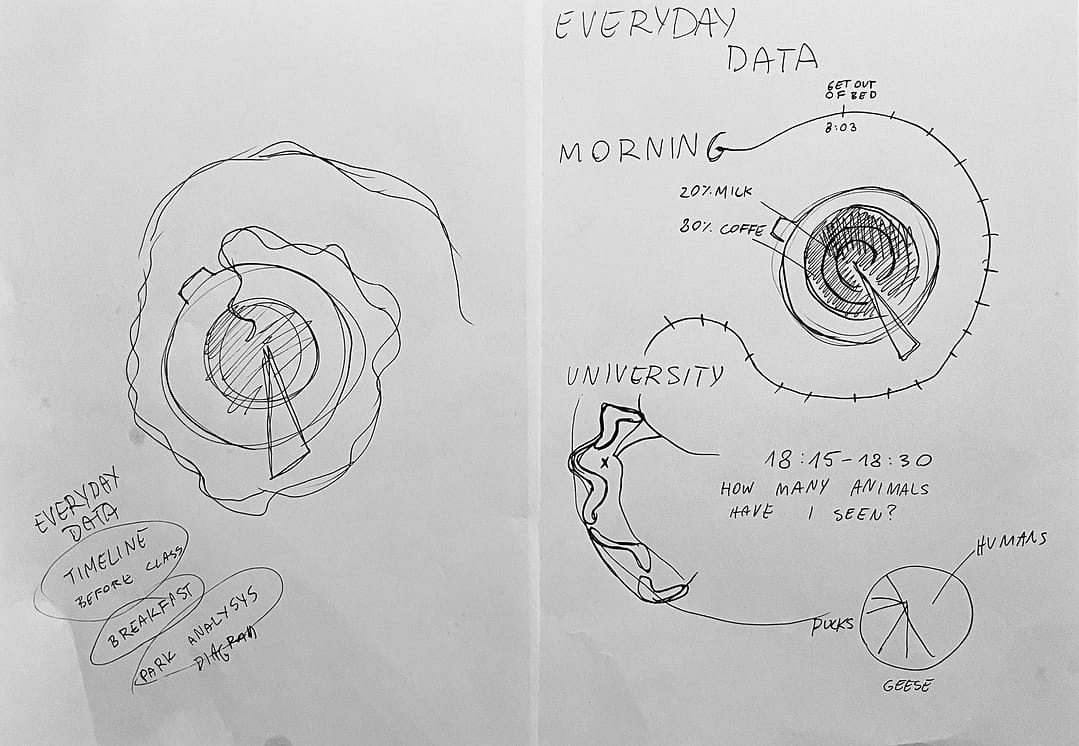 EVERYDAY
DATA
TIMELINE
BEFORE CLASS
BREAKFAST
PARK ANALYSYS
DIAGRAM
EVERYDAY
DATA
GET OUT
OF BED
8:03
MORNING
20% MILK
80% COFFE
UNIVERSITY
x
18:15-18:30
HOW MANY ANIMALS
HAVE I SEEN?
HUMANS
DUCKS
GEESE